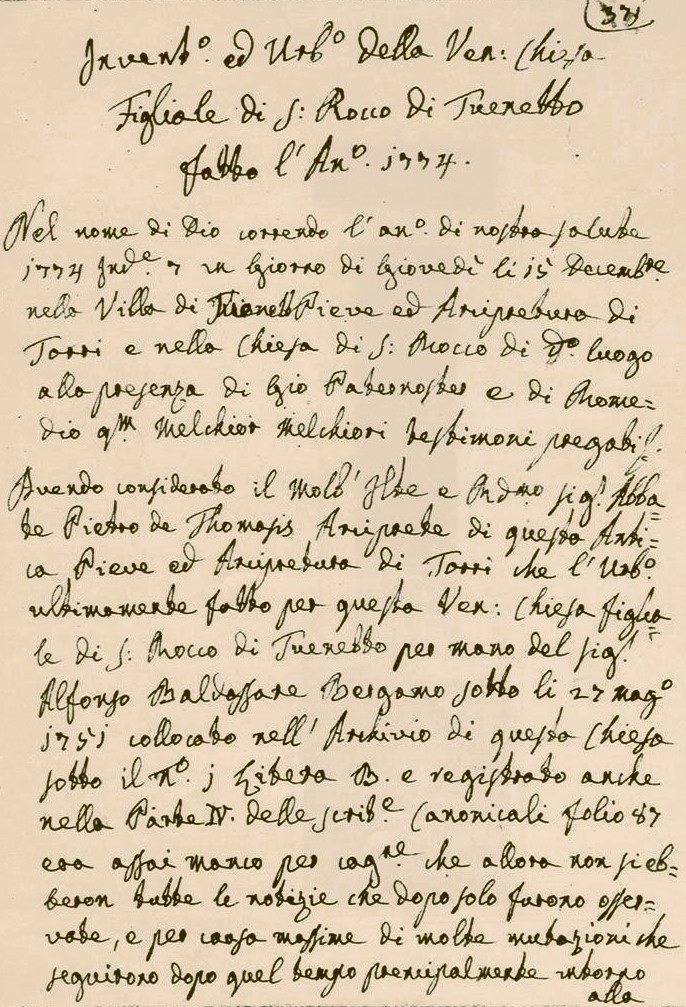 37
Invent.º ed Urb.º della Ven: Chiesa
Figliale di S: Rocco di Tuenetto
fatto l' An.º 1774.
Nel nome di Dio correndo l' an.º di nostra salute
1774 Ind.e 7 in Giorno di Giovedì li 15 Decembre
nella Villa di Pieve ed Arcipretura di
Torri e nella Chiesa di S: Rocco di d.º luogo
alla presenza di Gio Paternoster e di Rome=
dio qm Melchior Melchiori testimoni pregati
Avendo considerato il Molt' Ilte e Rdmo sig.r Abba
te Pietro de Thomasis Arciprete di questa Anti=
ca Pieve ed Arcipretura di Torri che l' Urb.º
ultimamente fatto per questa Ven: Chiesa figlia
le di S: Rocco di Tuenetto per mano del sig.r
Alfonso Baldassare Bergamo sotto li 27 mag.º
1751 collocato nell' Archivio di questa Chiesa
sotto il N.º 1 Litera B. e registrato anche
nella Parte IV. delle scrit.e Canonicali folio 87
era assai manco per cag.ne che allora non si eb=
beron tutte le notizie che dopo solo furono osser=
vate, e per causa massime di molte mutazioni che
seguirono dopo quel tempo prencipalmente intorno
alla